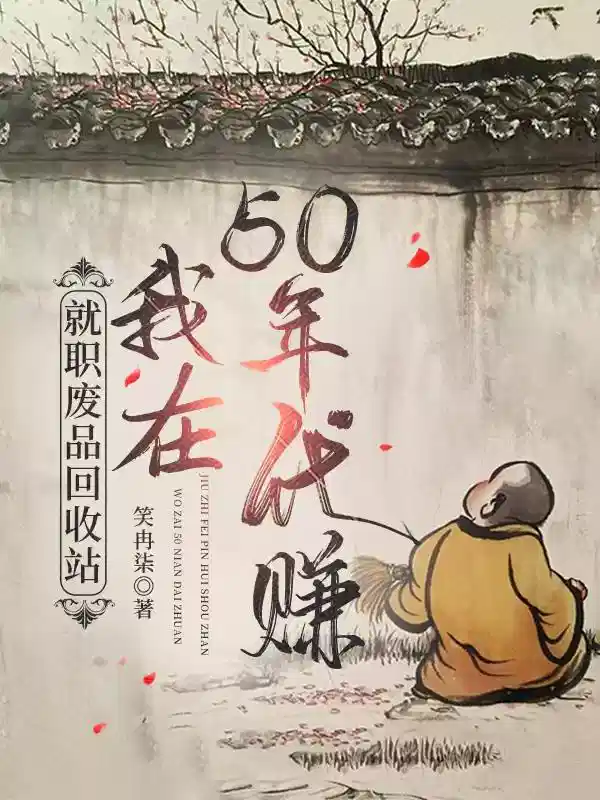 就职废品回收站
我在
50年代赚
JIU ZHI FEI PIN HUI SHOU ZHAN
WO ZAI 50 NIAN DAI ZHUAN
笑冉柒◎著